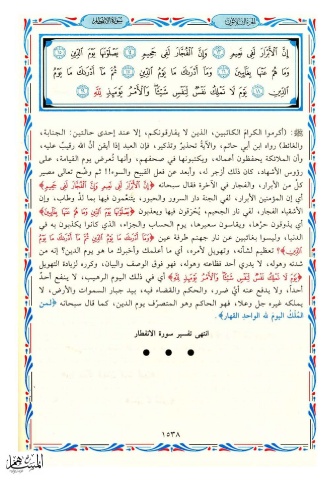 الجزء الثلاثون
سورة الانفطار
إِنَّ الْأَبْرَارَ لَفِي نَعِيمٍ ۝ وَإِنَّ الْفُجَّارَ لَفِي جَحِيمٍ ۝ يَصْلَوْنَهَا يَوْمَ الدِّينِ ۝
وَمَا هُمْ عَنْهَا بِغَائِبِينَ ۝ وَمَا أَدْرَاكَ مَا يَوْمُ الدِّينِ ۝ ثُمَّ مَا أَدْرَاكَ مَا يَوْمُ
الدِّينِ ۝ يَوْمَ لَا تَمْلِكُ نَفْسٌ لِنَفْسٍ شَيْئًا وَالْأَمْرُ يَوْمَئِذٍ لِلَّهِ
: (أكرموا الكرام الكاتبين، الذين لا يفارقونكم، إلا عند إحدى حالتين: الجنابة،
والغائط) رواه ابن أبي حاتم، والآية تحذير وتذكير، فإن العبد إذا أيقن أن الله رقيب عليه،
وأن الملائكة يحفظون أعماله، ويكتبونها في صحفهم، وأنها تُعرض يوم القيامة، على
رؤوس الأشهاد، كان ذلك أزجر له، وأبعد عن فعل القبيح والسوء!! ثم وضَّح تعالى مصير
كلٍّ من الأبرار، والفجار في الآخرة فقال سبحانه ﴿إِنَّ الْأَبْرَارَ لَفِي نَعِيمٍ وَإِنَّ الْفُجَّارَ لَفِي جَحِيمٍ﴾
أي إن المؤمنين الأبرار، لفي الجنة دار السرور والحبور، يتنعَّمون فيها بما لذَّ وطاب، وإن
الأشقياء الفجار، لفي نار الجحيم، يُحْرَقون فيها ويعذبون ﴿يَصْلَوْنَهَا يَوْمَ الدِّينِ وَمَا هُمْ عَنْهَا بِغَائِبِينَ﴾
أي يذوقون حرَّها، ويقاسون سعيرها، يوم الحساب والجزاء، الذي كانوا يكذبون به في
الدنيا، وليسوا بغائبين عن نار جهنم طرفة عين ﴿وَمَا أَدْرَاكَ مَا يَوْمُ الدِّينِ ثُمَّ مَا أَدْرَاكَ مَا يَوْمُ
الدِّينِ﴾؟ تعظيم لشأنه، وتهويل لأمره، أي ما أعلمك وأخبرك ما هو يوم الدين؟ إنه من
شدته وهوله، لا يدري أحد فظاعته وهوله، فهو فوق الوصف والبيان، وكرره لزيادة التهويل
﴿يَوْمَ لَا تَمْلِكُ نَفْسٌ لِنَفْسٍ شَيْئًا وَالْأَمْرُ يَوْمَئِذٍ لِلَّهِ﴾ أي في ذلك اليوم الرهيب، لا ينفع أحدٌ
أحداً، ولا يدفع عنه أيَّ ضرر، والحكم والقضاء فيه، بيد جبار السموات والأرض، لا
يملكه غيره جل وعلا، فهو الحاكم وهو المتصرِّف يوم الدين، كما قال سبحانه ﴿لمن
الملك اليوم لله الواحد القهار﴾.
انتهى تفسير سورة الانفطار
١٥٣٨